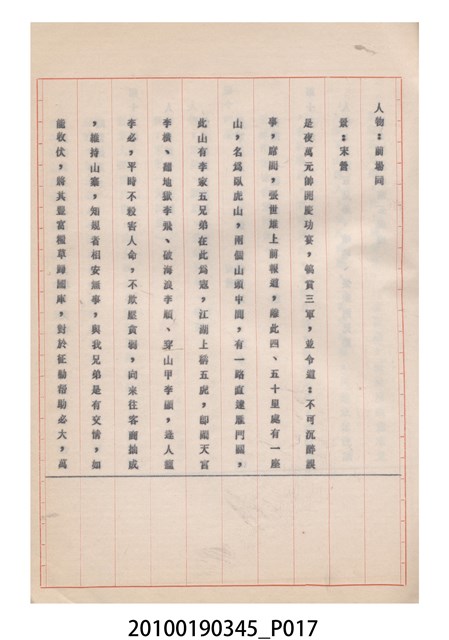 人物:前場同
景:宋營
是夜萬元帥開慶功宴,犒賞三軍,並令道:不可沉醉誤
事,席間,張世雄上前報道,離此四、五十里處有一座
山,名爲臥虎山,兩個山頭中間,有一路直達雁門關,
此山有李家五兄弟在此爲寇,江湖上稱五虎,即鬧天宮
李橫、翻地獄李飛、破海浪李順、穿山甲李顯,迷人瘟
李必,平時不殺害人命,不欺壓貧弱,向來往客商抽成
,維持山寨,知縣者相安無事,與我兄弟是有交情,如
能收伏,將其豐富糧草歸國庫,對於征勦帮助必大,萬
20100190345_P017